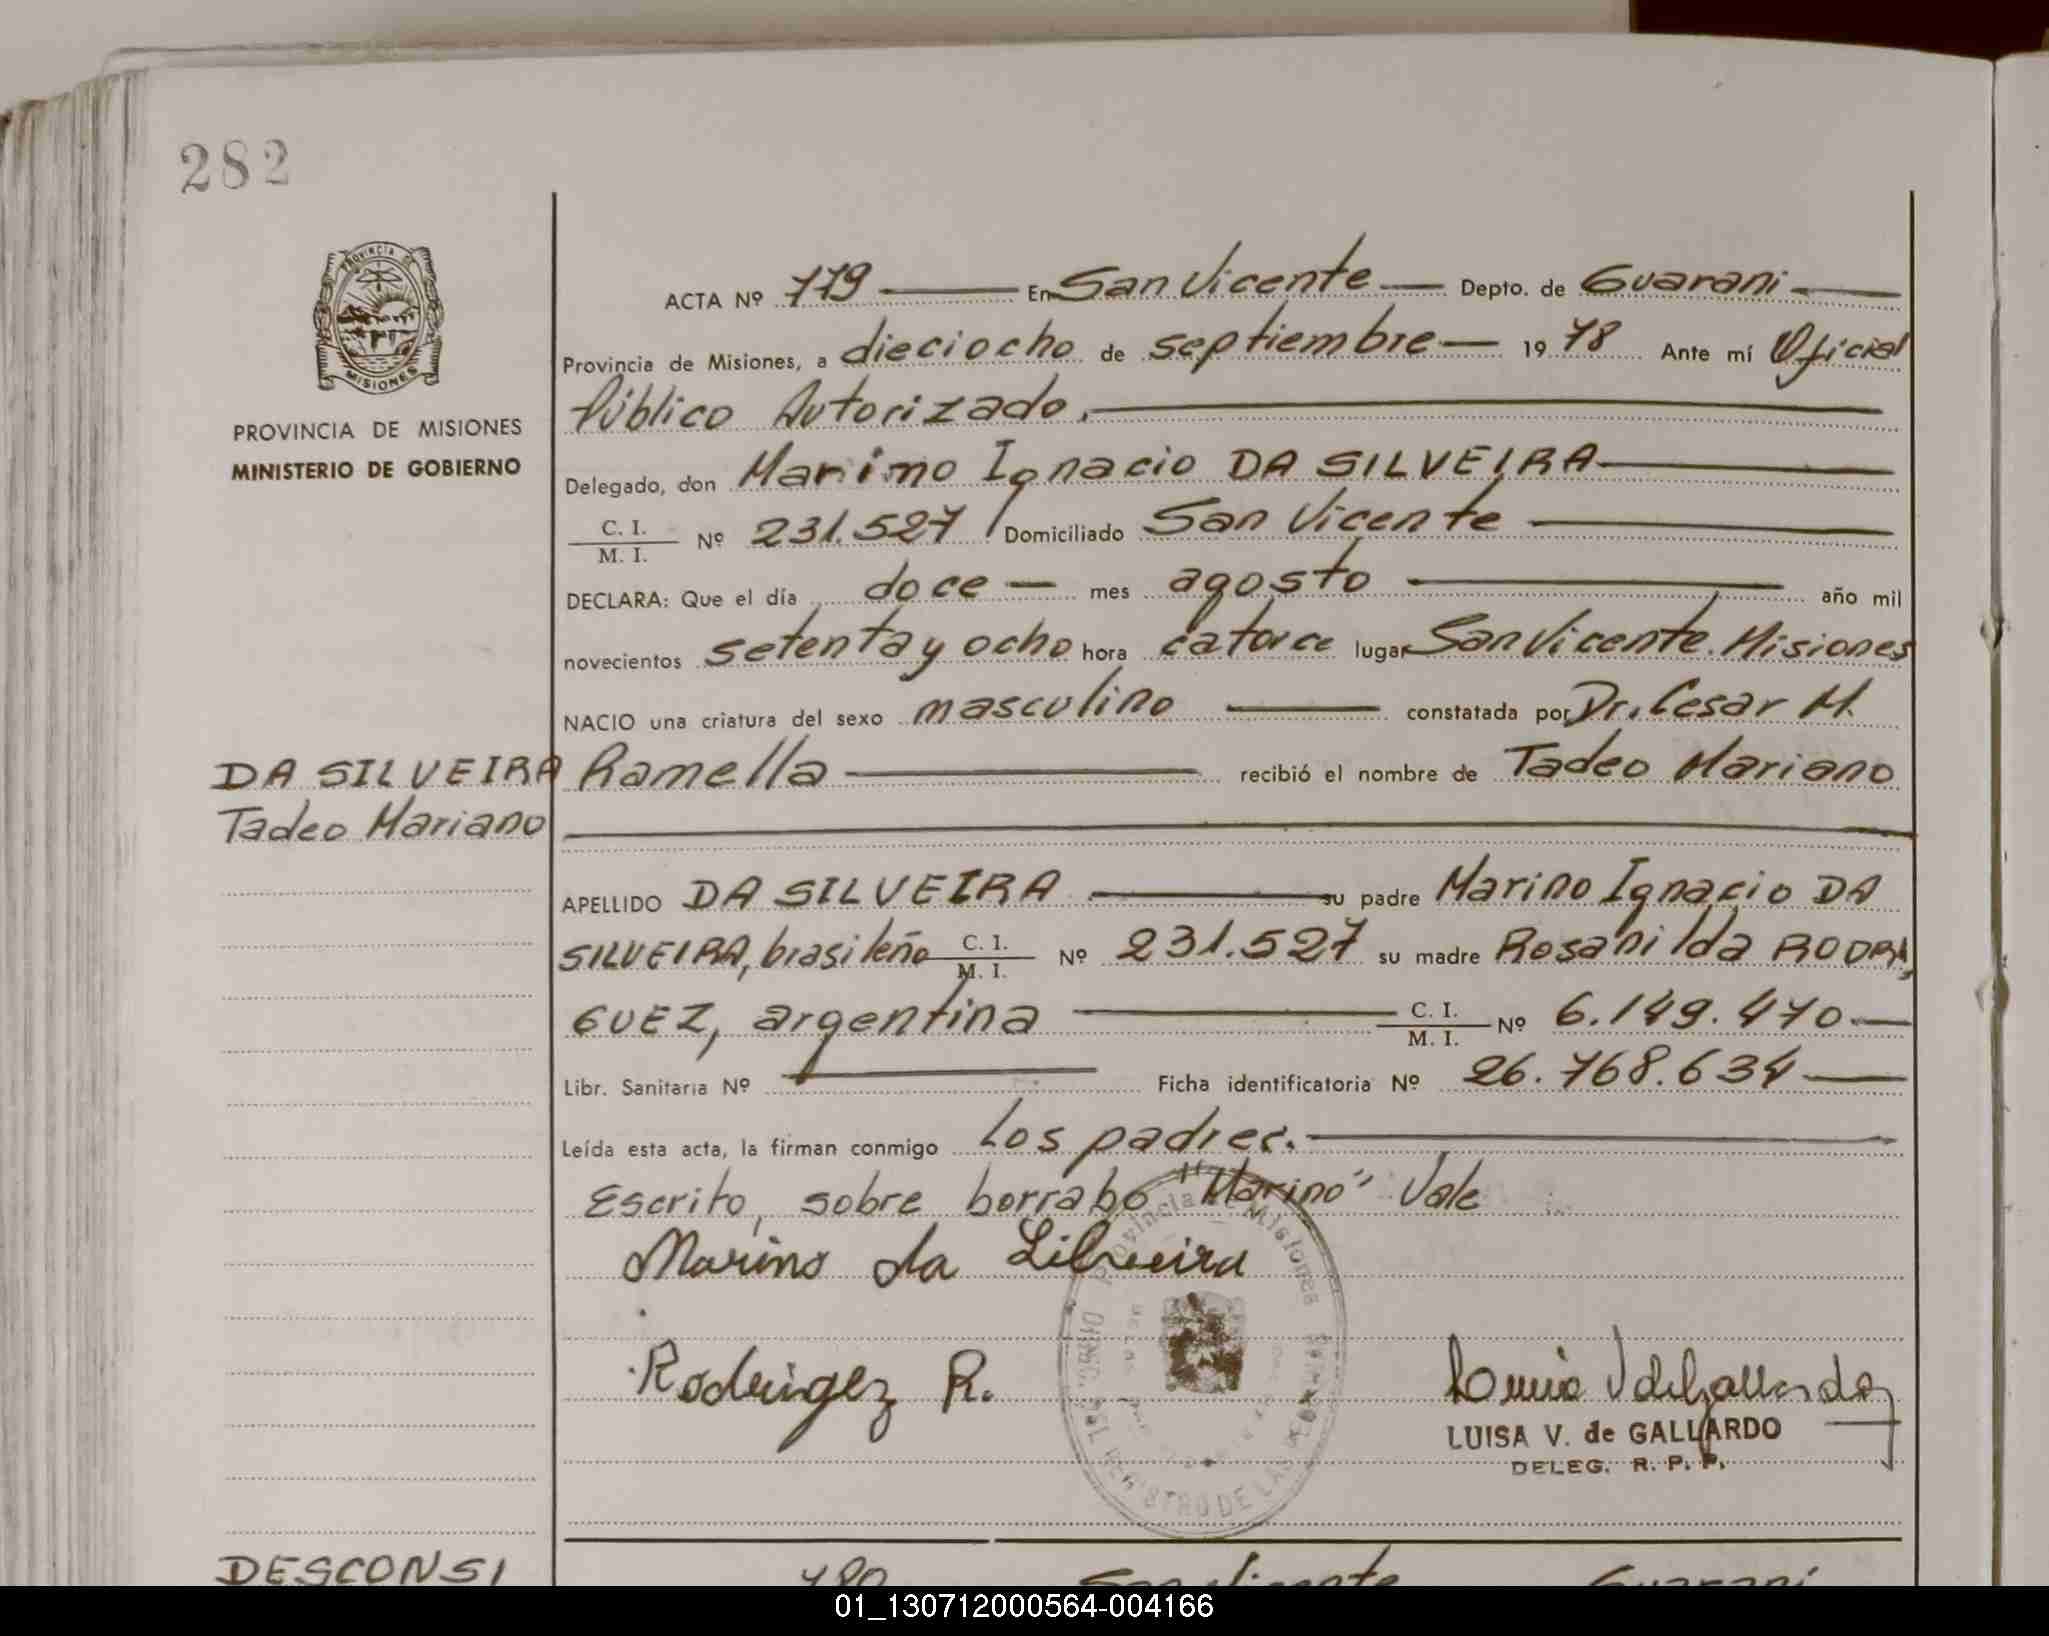 282
PROVINCIA DE MISIONES
PROVINCIA DE MISIONES
MINISTERIO DE GOBIERNO
ACTA Nº 779 En San Vicente Depto. de Guarani
Provincia de Misiones, a dieciocho de septiembre 19 78 Ante mí Oficial
Público Autorizado.
Delegado, don Marino Ignacio DA SILVEIRA
C. I.
M. I. Nº 231.527 Domiciliado San Vicente
DECLARA: Que el día doce mes agosto año mil
novecientos setenta y ocho hora catorce lugar San Vicente. Misiones
NACIO una criatura del sexo masculino constatada por Dr. Cesar M.
DA SILVEIRA
Tadeo Mariano
Ramella recibió el nombre de Tadeo Mariano
APELLIDO DA SILVEIRA su padre Marino Ignacio DA
SILVEIRA, brasileño C. I. M. I. Nº 231.527 su madre Rosanilda RODRI
GUEZ, argentina C. I. M. I. Nº 6.149.470
Libr. Sanitaria Nº Ficha identificatoria Nº 26.768.634
Leída esta acta, la firman conmigo los padres.
Escrito, sobre borrado "Marino" Vale
Marino da Silveira
Provincia Misiones
DIREC. DEL REGISTRO DE LAS PERSONAS
Rodrigez R.
Luisa V de Gallardo
LUISA V. de GALLARDO
DELEG. R. P. P.
DESCONSI 780 San Vicente Guaraní
01_130712000564-004166